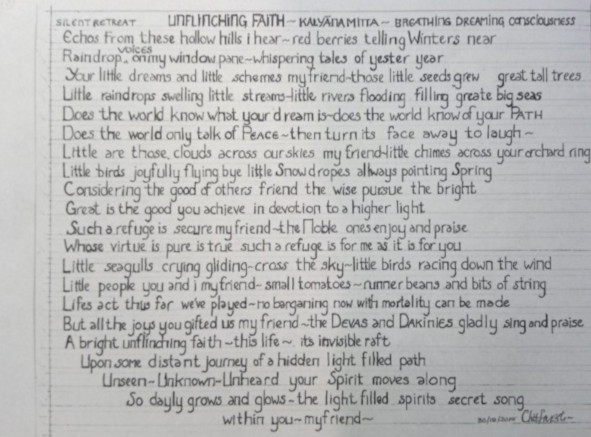 SILENT RETREAT UNFLINCHING FAITH ~ KALYĀNAMITTA ~ BREATHING DREAMING CONSCIOUSNESS
Echos from these hollow hills i hear~red berries telling Winters near
voices
Raindrop, on my window pane~whispering tales of yester year
Your little dreams and little schemes my friend~those little seeds grew great tall trees
Little raindrops swelling little streams~little rivers flooding filling greate big seas
Does the world know what your dream is~does the world know of your PATH
Does the world only talk of PEACE~then turn its face away to laugh~
Little are those, clouds across our skies my friend~little chimes across your orchard ring
Little birds joyfully flying bye little Snowdropes allways pointing Spring
Considering the good of others friend the wise pursue the bright
Great is the good you achieve in devotion to a higher light
Such a refuge is secure my friend~the Noble ones enjoy and praise
Whose virtue is pure is true such a refuge is for me as it is for you
Little seagulls crying gliding~cross the sky~little birds racing down the wind
Little people you and i my friend~small tomatoes~runner beans and bits of string
Lifes act thus far we've played~no barganing now with mortality can be made
But all the joys you gifted us my friend~the DEVAS and DAKINIES gladly sing and praise
A bright unflinching faith~this life~ its invisible raft
Upon some distant journey of a hidden light filled path
Unseen~Unknown~Unheard your Spirit moves along
So dayly grows and glows~the light filled spirits secret song
within you~my friend~